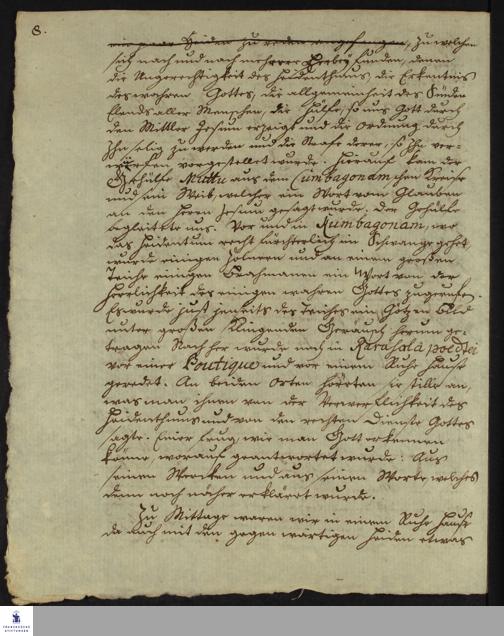 8.
ein paar Heiden zu reden angefangen, zu welchen
sich nach und nach mehrere herbey funden, denen
die Ungerechtigkeit des Heidenthums, die Erkentnis
des wahren Gottes, die allgemeinheit des Sünden
Elends aller Menschen, die Hülfe, so uns Gott durch
den Mittler Jesum erzeigt und die Ordnung durch
Ihn selig zu werden und die Strafe derer, so Ihn ver-
würfen vorgestellet wurde. Hierauf kam der
Gehülfe Muttu aus dem Cumbagonamschen Kreise
und sein Weib, welcher ein Wort vom Glauben
an den Herrn Jesum gesagt wurde. Der Gehülfe
begleitete uns. Vor und in Kumbagonam, wo
das Heidentum recht fürchterlich im Schwange gehet
wurde einigen Zölnern und an einem großen
Teiche einigen Brahmanen ein Wort von der
Herrlichkeit des einigen wahren Gottes zugerufen.
Es wurde just jenseits des Teiches ein Götzen Bild
unter großen klingenden Geräusch herum ge-
tragen Nachher wurde noch in Rarasola poedtei
vor einer Boutique und vor einem Ruhe Hause
geredet. An beiden Orten hörten sie stille an,
was man ihnen von der Verwerflichkeit des
Heidenthums und von den rechten Dienste Gottes
sagte. Einer frug, wie man Gott erkennen
könne, worauf geantwortet wurde: Aus
seinen Wercken und aus seinem Worte welches
denn noch näher erklärt wurde.
Zu Mittage waren wir in einem Ruhe Hause
da auch mit den gegenwärtigen Heiden etwas
FRANCKESCHE
STIFTUNGEN